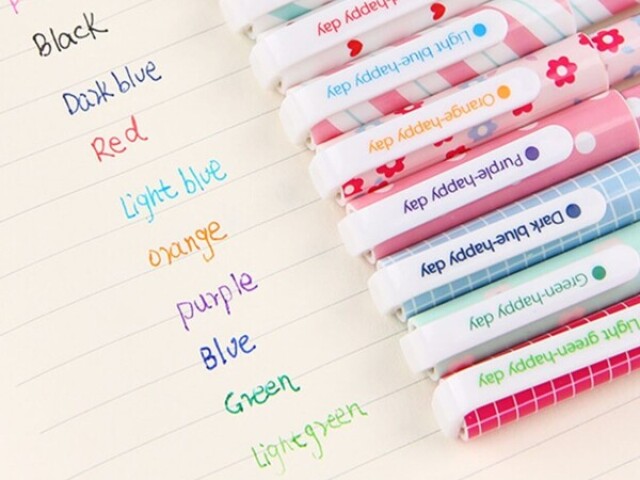 Black
Dark blue
Red
Light blue
orange
purple
Blue
Green
Lightgreen
-happy day
Light blue-happy day
Orange-happy day
Purple-happy day
Dark blue-happy day
Green-happy day
Light green-happy day